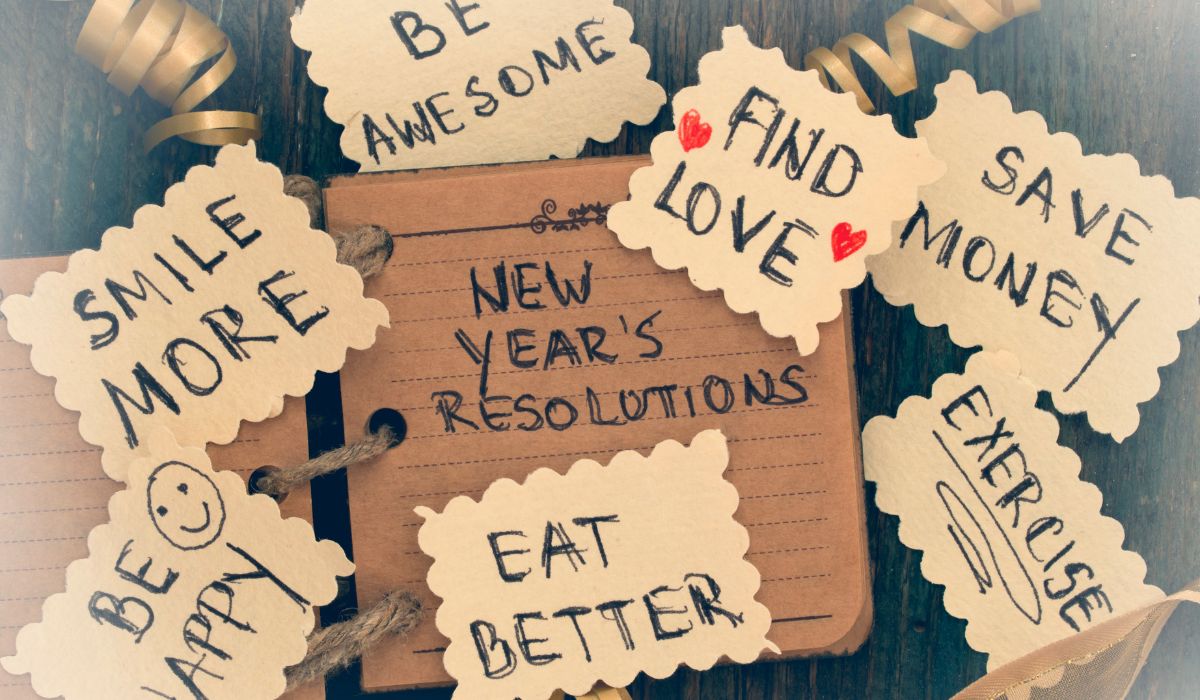 BE
AWESOME
FIND
LOVE
SAVE
MONEY
SMILE
MORE
NEW
YEAR'S
RESOLUTIONS
EXERCISE
EAT
BETTER
BE
HAPPY